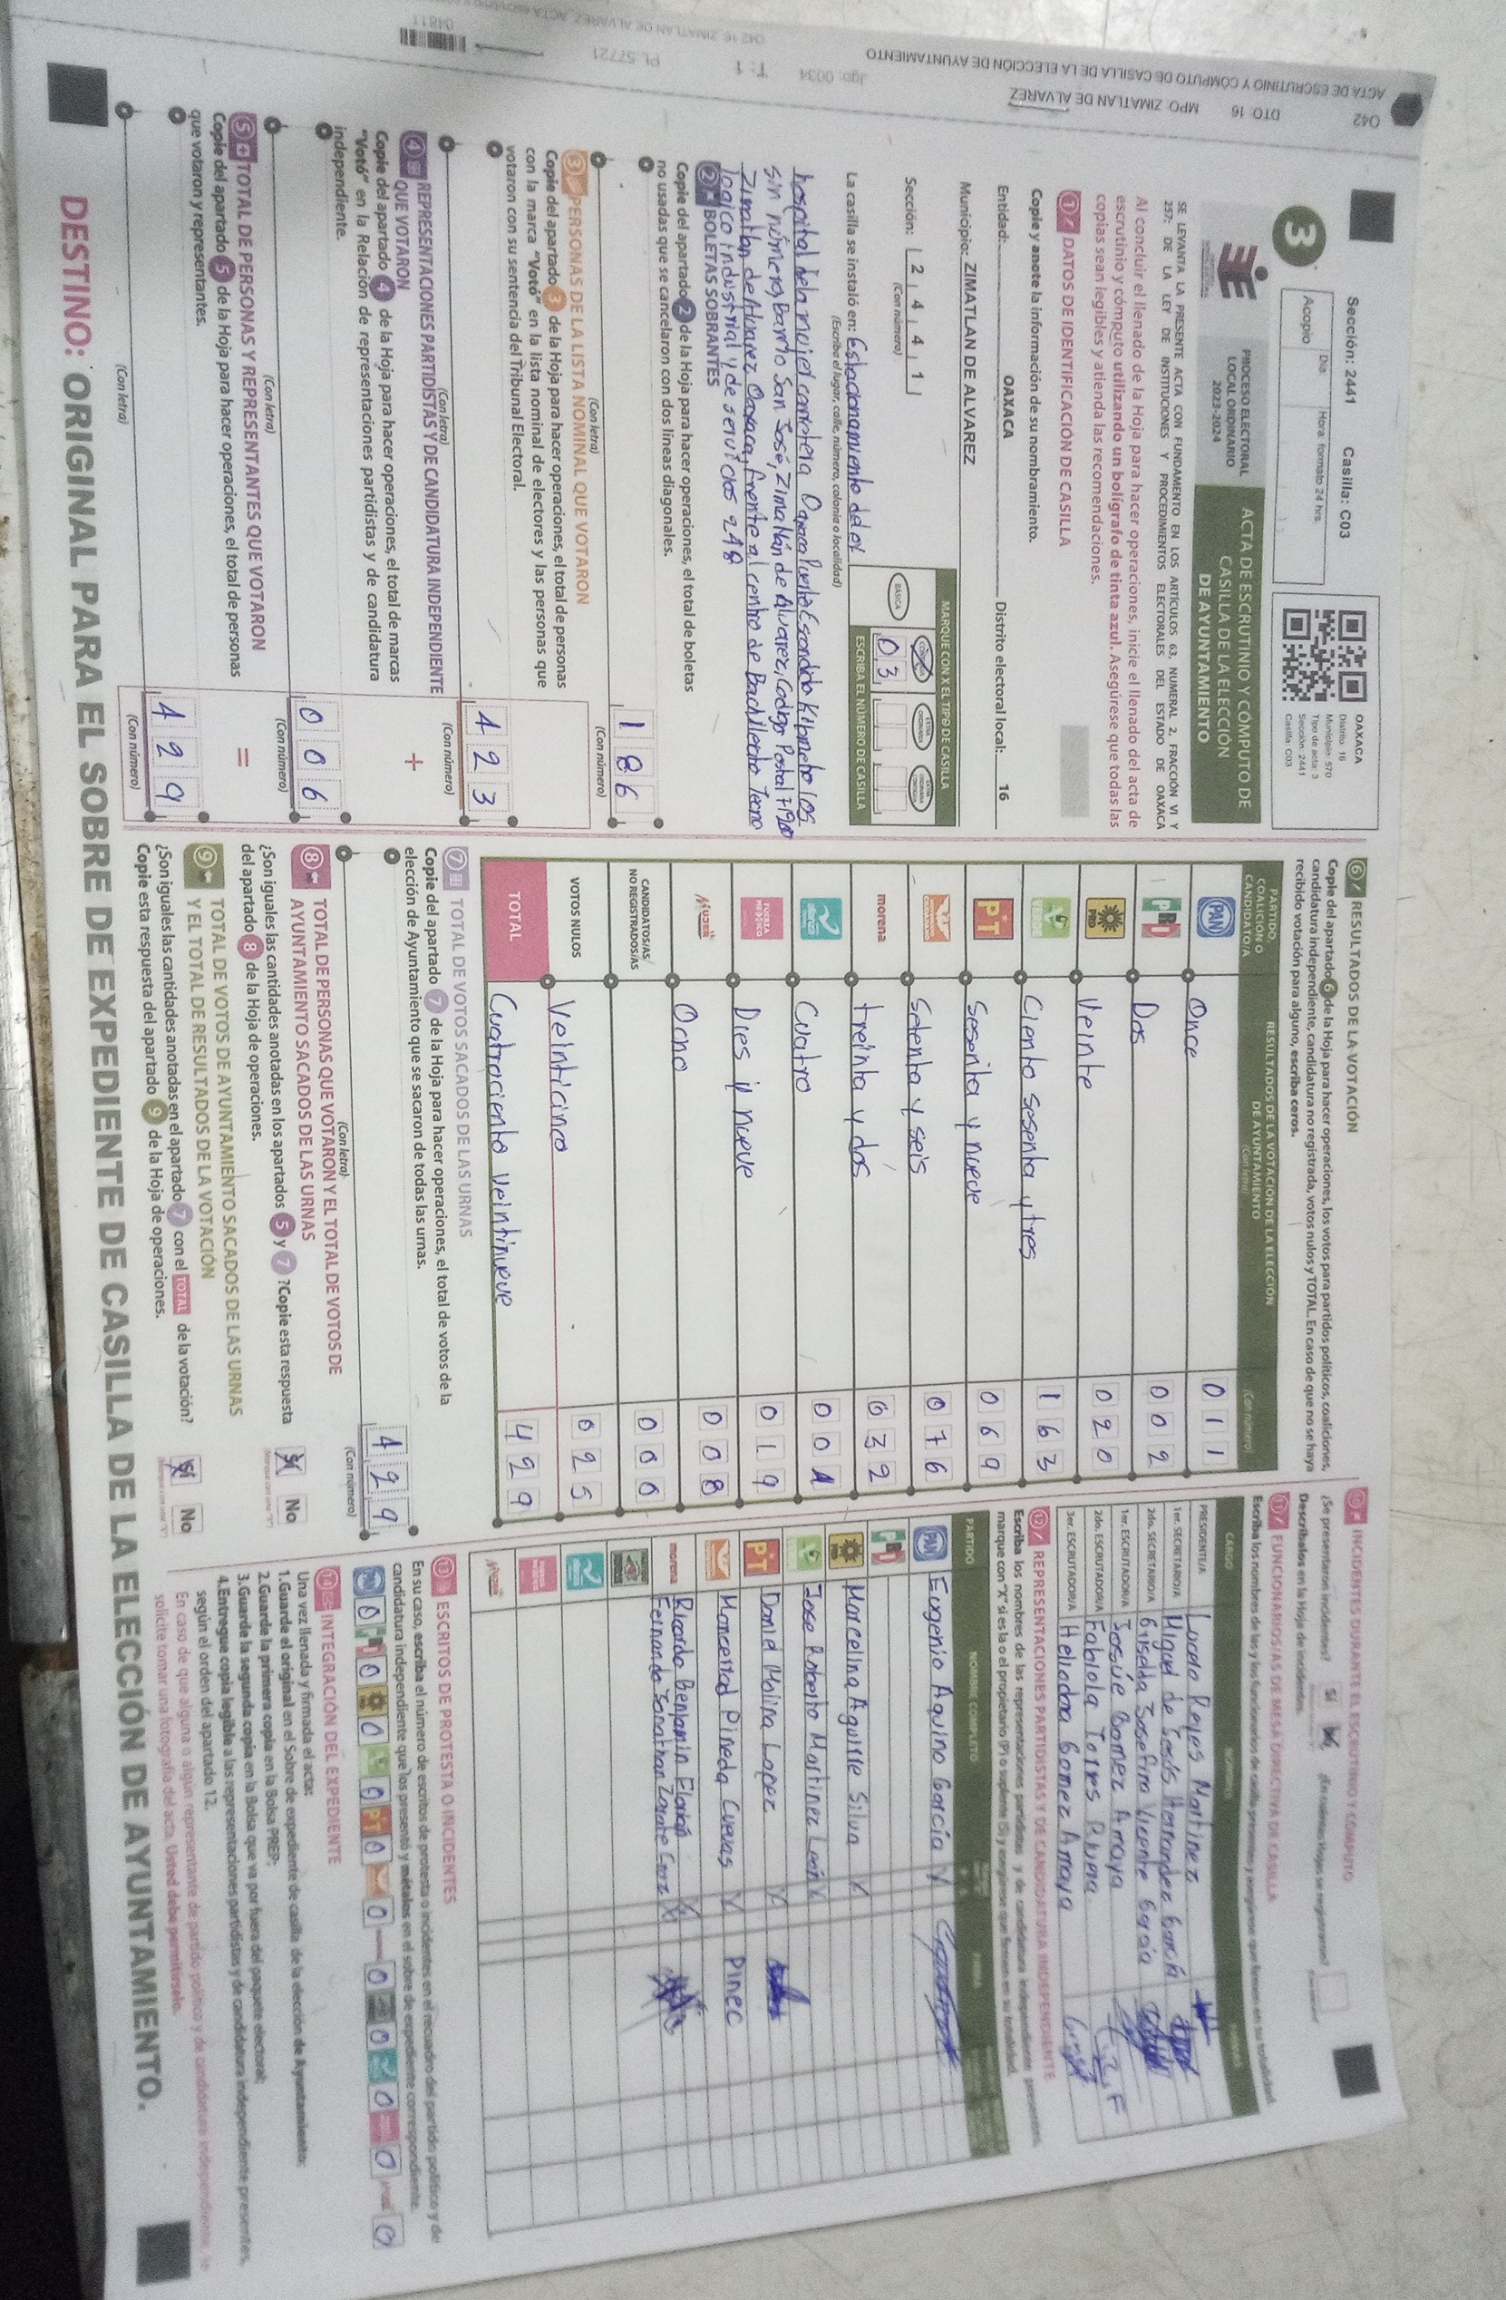 042
DTO: 16 MPO: ZIMATLAN DE ALVAREZ
ACTA DE ESCRUTINIO Y CÓMPUTO DE CASILLA DE LA ELECCIÓN DE AYUNTAMIENTO
Jgo: 0034 T: 1 PL: 57721
04811
Sección: 2441 Casilla: C03
3
Acopio
Día Hora: formato 24 hrs.
OAXACA
Distrito: 16
Municipio: 570
Tipo de acta: 3
Sección: 2441
Casilla: C03
PROCESO ELECTORAL
LOCAL ORDINARIO
2023-2024
ACTA DE ESCRUTINIO Y CÓMPUTO DE
CASILLA DE LA ELECCIÓN
DE AYUNTAMIENTO
SE LEVANTA LA PRESENTE ACTA CON FUNDAMENTO EN LOS ARTÍCULOS 63, NUMERAL 2, FRACCIÓN VI Y
257; DE LA LEY DE INSTITUCIONES Y PROCEDIMIENTOS ELECTORALES DEL ESTADO DE OAXACA
Al concluir el llenado de la Hoja para hacer operaciones, inicie el llenado del acta de
escrutinio y cómputo utilizando un bolígrafo de tinta azul. Asegúrese que todas las
copias sean legibles y atienda las recomendaciones.
1 DATOS DE IDENTIFICACIÓN DE CASILLA
Copie y anote la información de su nombramiento.
Entidad: OAXACA Distrito electoral local: 16
Municipio: ZIMATLAN DE ALVAREZ
MARQUE CON X EL TIPO DE CASILLA
BÁSICA
ESCRIBA EL NÚMERO DE CASILLA
03
Sección: 2 4 4 1
(Con número)
La casilla se instaló en: Estacionamiento del
(Escriba el lugar, calle, número, colonia o localidad)
hospital de la mujer carretera Oaxaca Puerto Escondido Kilometro 105
sin número, Barrio San José, Zimatlán de Alvarez, Codigo Postal 71200
Zimatlan de Alvarez Oaxaca, frente al centro de Bachillerato Tecno
logico industrial y de servicios 248
2 BOLETAS SOBRANTES
Copie del apartado 2 de la Hoja para hacer operaciones, el total de boletas
no usadas que se cancelaron con dos líneas diagonales.
1 8 6
(Con letra) (Con número)
3 PERSONAS DE LA LISTA NOMINAL QUE VOTARON
Copie del apartado 3 de la Hoja para hacer operaciones, el total de personas
con la marca "Votó" en la lista nominal de electores y las personas que
votaron con su sentencia del Tribunal Electoral.
4 2 3
(Con letra) (Con número)
4 REPRESENTACIONES PARTIDISTAS Y DE CANDIDATURA INDEPENDIENTE
QUE VOTARON
+
Copie del apartado 4 de la Hoja para hacer operaciones, el total de marcas
"Votó" en la Relación de representaciones partidistas y de candidatura
independiente.
0 0 6
(Con letra) (Con número)
5 TOTAL DE PERSONAS Y REPRESENTANTES QUE VOTARON
=
Copie del apartado 5 de la Hoja para hacer operaciones, el total de personas
que votaron y representantes.
4 2 9
(Con letra) (Con número)
6 RESULTADOS DE LA VOTACIÓN
Copie del apartado 6 de la Hoja para hacer operaciones, los votos para partidos políticos, coaliciones,
candidatura independiente, candidatura no registrada, votos nulos y TOTAL. En caso de que no se haya
recibido votación para alguno, escriba ceros.
PARTIDO, COALICIÓN O CANDIDATO/A
RESULTADOS DE LA VOTACIÓN DE LA ELECCIÓN
DE AYUNTAMIENTO
(Con letra) (Con número)
PAN Once 0 1 1
PRI Dos 0 0 2
PRD Veinte 0 2 0
VERDE Ciento sesenta y tres 1 6 3
PT Sesenta y nueve 0 6 9
Setenta y seis 0 7 6
morena treinta y dos 0 3 2
Cuatro 0 0 4
FUERZA MÉXICO Dies y nueve 0 1 9
MUJER Ocho 0 0 8
CANDIDATOS/AS NO REGISTRADOS/AS 0 0 0
VOTOS NULOS Veinticinco 0 2 5
TOTAL Cuatrociento Veintinueve 4 2 9
7 TOTAL DE VOTOS SACADOS DE LAS URNAS
Copie del apartado 7 de la Hoja para hacer operaciones, el total de votos de la
elección de Ayuntamiento que se sacaron de todas las urnas.
4 2 9
(Con letra) (Con número)
8 TOTAL DE PERSONAS QUE VOTARON Y EL TOTAL DE VOTOS DE
AYUNTAMIENTO SACADOS DE LAS URNAS
¿Son iguales las cantidades anotadas en los apartados 5 y 7 ?Copie esta respuesta
del apartado 8 de la Hoja de operaciones.
Sí No
9 TOTAL DE VOTOS DE AYUNTAMIENTO SACADOS DE LAS URNAS
Y EL TOTAL DE RESULTADOS DE LA VOTACIÓN
¿Son iguales las cantidades anotadas en el apartado 7 con el TOTAL de la votación?
Copie esta respuesta del apartado 9 de la Hoja de operaciones.
Sí No
10 INCIDENTES DURANTE EL ESCRUTINIO Y CÓMPUTO
¿Se presentaron incidentes? Sí No
Descríbalos en la Hoja de incidentes.
11 FUNCIONARIOS/AS DE MESA DIRECTIVA DE CASILLA
Escriba los nombres de las y los funcionarios de casilla presentes y asegúrese que firmen en su totalidad.
CARGO NOMBRES
PRESIDENTE/A Reyes Martinez
1er. SECRETARIO/A Miguel de Jesús Hernandez García
2do. SECRETARIO/A Griselda Josefina Vicente García
1er. ESCRUTADOR/A Josúe Gomez Amaya
2do. ESCRUTADOR/A Fabiola Torres Rivera
3er. ESCRUTADOR/A Heliodora Gomez Amaya
12 REPRESENTACIONES PARTIDISTAS Y DE CANDIDATURA INDEPENDIENTE
Escriba los nombres de las representaciones partidistas y de candidatura independiente presentes,
marque con "X" si es la o el propietario (P) o suplente (S) y asegúrese que firmen en su totalidad.
PARTIDO NOMBRE COMPLETO FIRMA
PAN Eugenio Aquino García
PRI
PRD Marcelina Aguirre Silva
VERDE Jose Roberto Martinez
PT David Molina Lopez
Pineda Cuevas Pinec
morena Ricardo Benjamin
Fernando Jonathan Zarate Cruz
13 ESCRITOS DE PROTESTA O INCIDENTES
En su caso, escriba el número de escritos de protesta o incidentes en el recuadro del partido político y de
candidatura independiente que los presentó y métalos en el sobre de expediente correspondiente.
0 0 0 0 0 0 0 0 0 0 0
14 INTEGRACIÓN DEL EXPEDIENTE
Una vez llenada y firmada el acta:
1.Guarde el original en el Sobre de expediente de casilla de la elección de Ayuntamiento;
2.Guarde la primera copia en la Bolsa PREP;
3.Guarde la segunda copia en la Bolsa que va por fuera del paquete electoral;
4.Entregue copia legible a las representaciones partidistas y de candidatura independiente presentes,
según el orden del apartado 12.
En caso de que alguna o algún representante de partido político y de candidatura independiente, le
solicite tomar una fotografía del acta, Usted debe permitírselo.
DESTINO: ORIGINAL PARA EL SOBRE DE EXPEDIENTE DE CASILLA DE LA ELECCIÓN DE AYUNTAMIENTO.